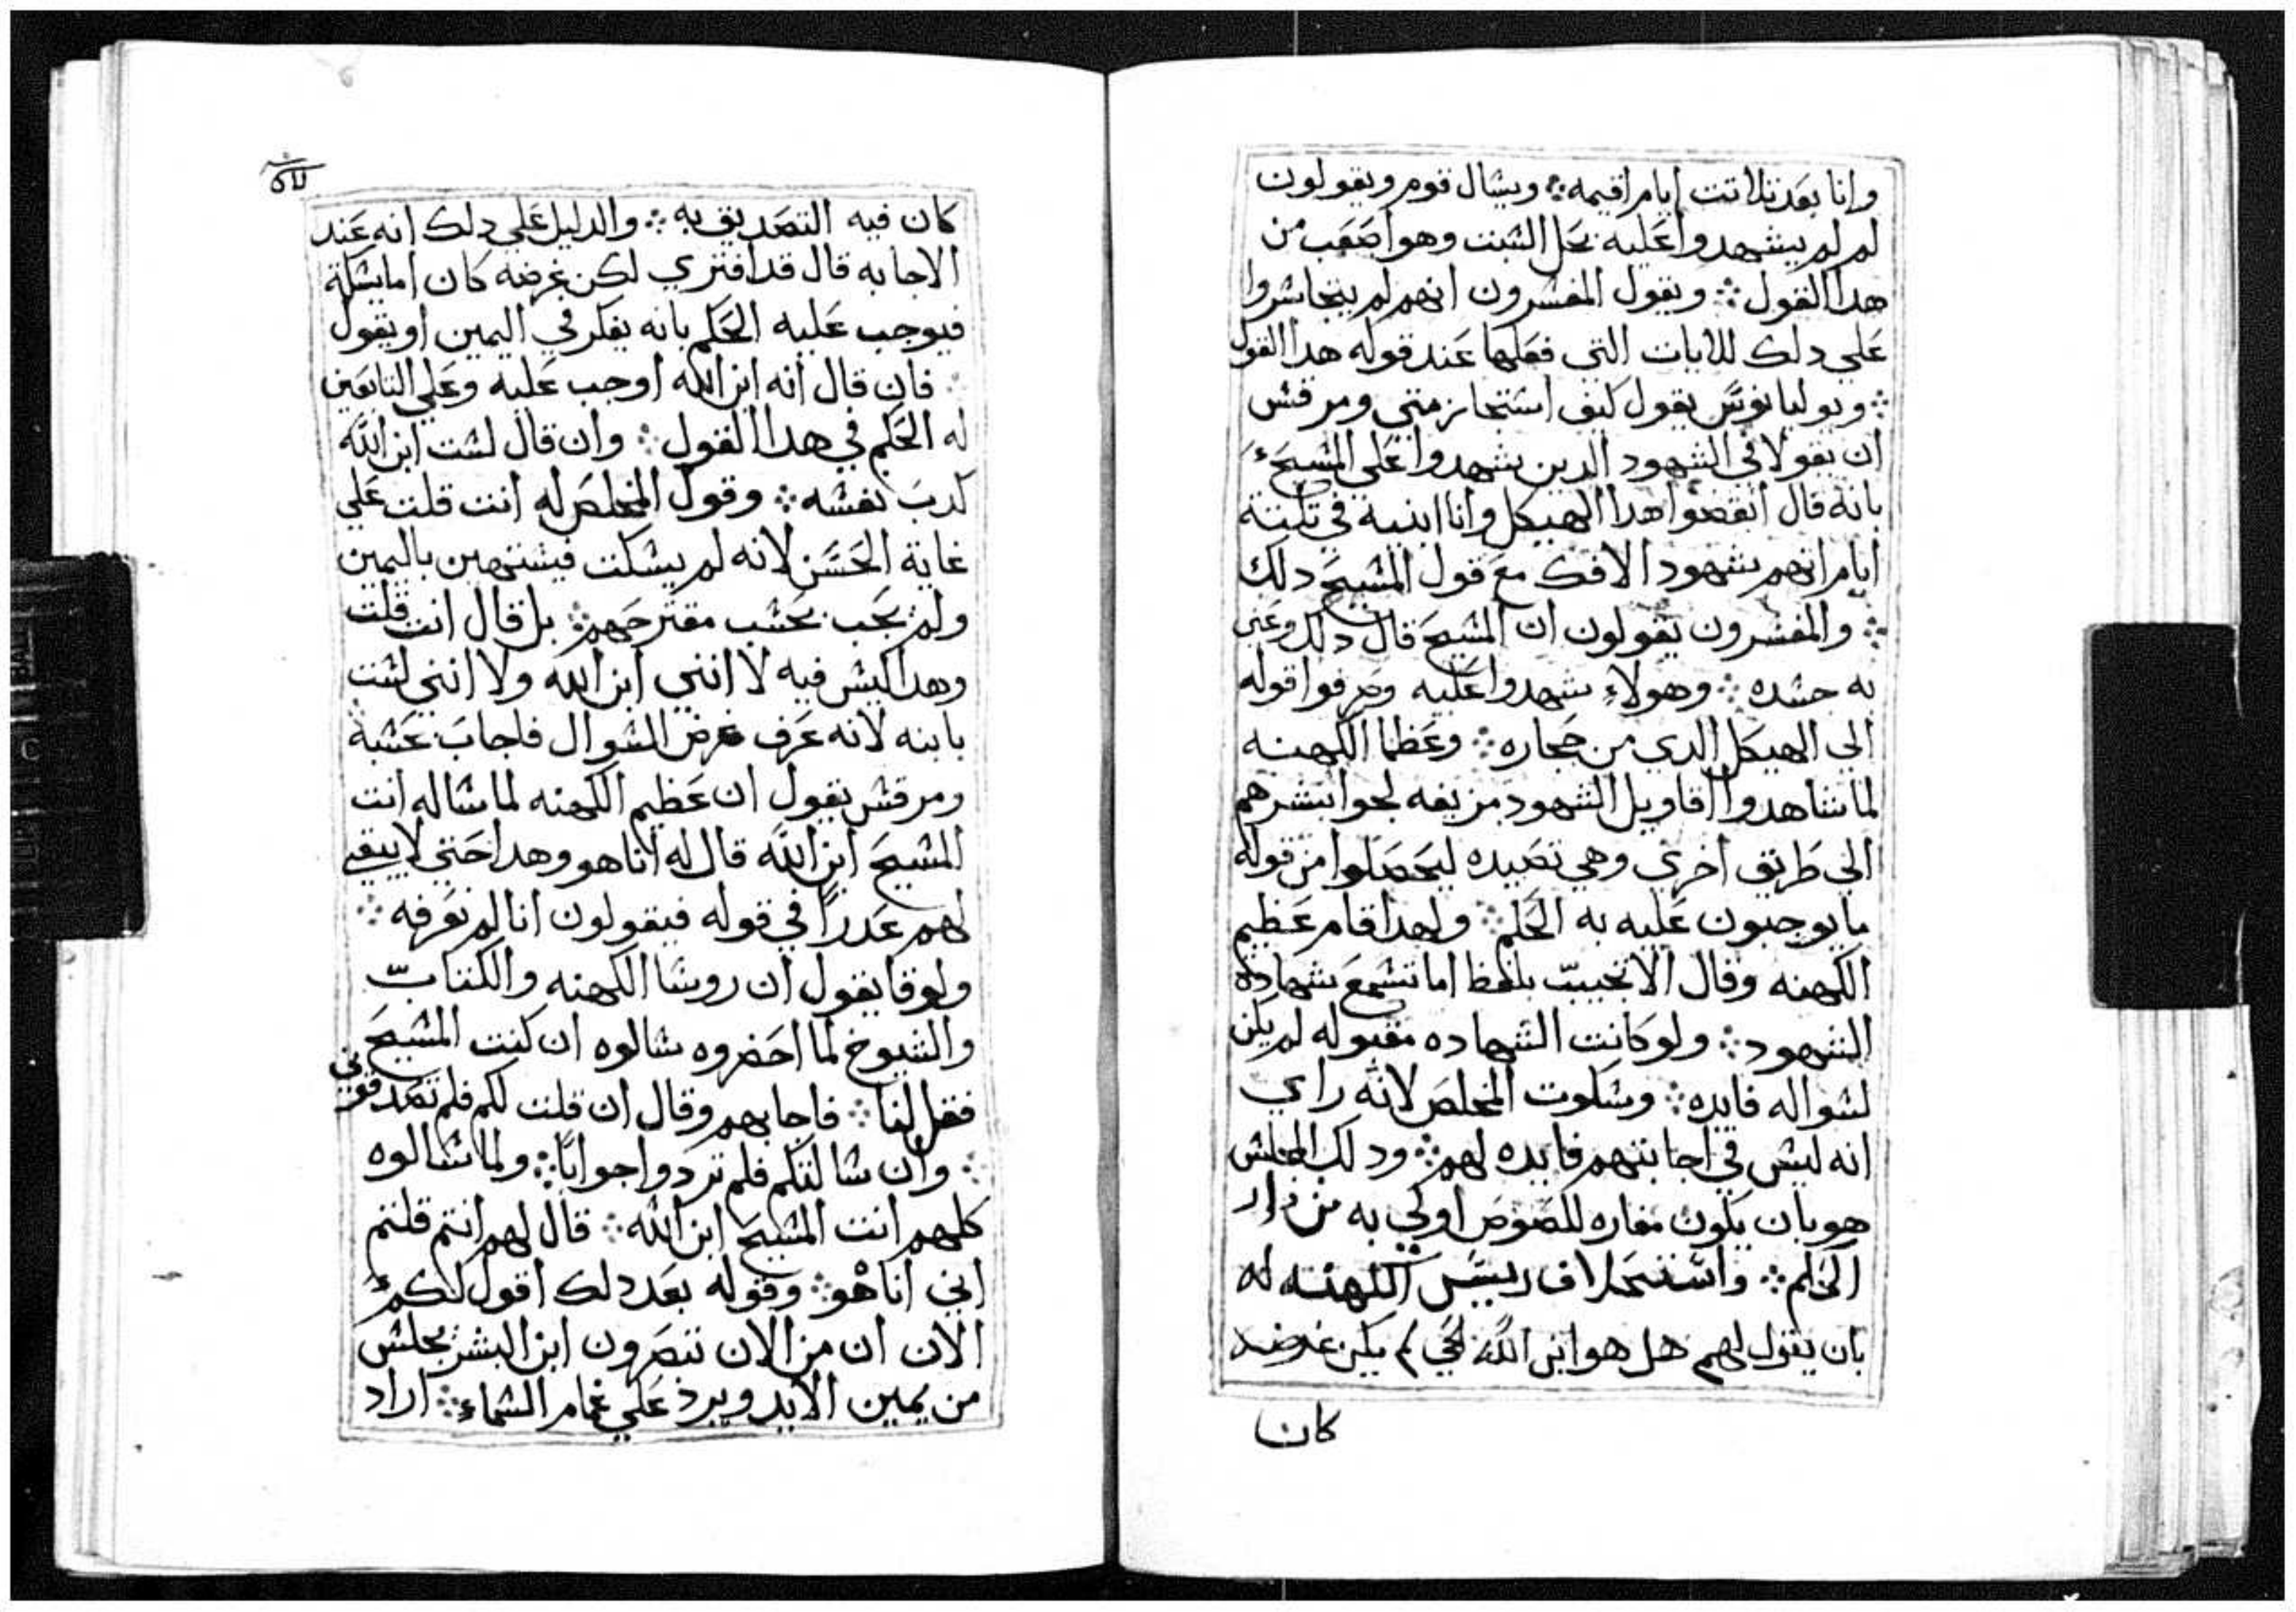 وانا بعد تلاتت ايام اقيمه ويسال قوم ويقولون
لم لم يشهدوا عليه بحل السبت وهو اصعب من
هدا القول ويقول المفسرون انهم لم يتجاسروا
علي دلك للايات التي فعلها عند قوله هدا القول
وبوليانوس يقول كيف استجاز متي ومرقس
ان يقولا في الشهود الدين شهدوا علي المسيح
بانه قال انقضوا هدا الهيكل وانا ابنيه في تلتة
ايام انهم شهود الافك مع قول المسيح دلك
والمفسرون يقولون ان المسيح قال دلك وعني
به جسده وهولاء شهدوا عليه وصرفوا قوله
الي الهيكل الدي من حجاره وعظما الكهنه
لما شاهدوا اقاويل الشهود مزيفه لجوا بشرهم
الي طريق اخري وهي تصيده ليحصلوا من قوله
ما يوجبون عليه به الحكم ولهدا قام عظيم
الكهنه وقال الا تجيب بلفظ اما تسمع شهادة
الشهود ولو كانت الشهاده مقبوله لم يكن
لسواله فايده وسكوت المخلص لانه راي
انه ليس في اجابتهم فايده لهم ودلك المجلس
هو بان يكون مغاره للصوص اولي به من دار
الحكم واستحلاف رييس الكهنه له
بان يقول لهم هل هو ابن الله الحي لم يكن غرضه
كان
كان فيه التصديق به والدليل علي دلك انه عند
الاجابه قال قد افتري لكن غرضه كان اما يسكت
فيوجب عليه الحكم بانه يفكر في اليمين او يقول
فان قال انه ابن الله اوجب عليه وعلي التابعين
له الحكم في هدا القول وان قال لست ابن الله
كدب نفسه وقول المخلص له انت قلت علي
غاية الحسن لانه لم يسكت فيستهين باليمين
ولم يجب بحسب مقترحهم بل قال انت قلت
وهدا ليس فيه لا انني ابن الله ولا انني لست
بابنه لانه عرف غرض السوال فاجاب بحسبه
ومرقس يقول ان عظيم الكهنه لما ساله انت
المسيح ابن الله قال له انا هو وهدا حتي لا يبقي
لهم عدرا في قوله فيقولون انا لم نعرفه
ولوقا يقول ان روسا الكهنه والكتاب
والشيوخ لما احضروه سالوه ان كنت المسيح
فقل لنا فاجابهم وقال ان قلت لكم فلم تصدقوني
وان سالتكم فلم تردوا جوابا ولما سالوه
كلهم انت المسيح ابن الله قال لهم انتم قلتم
اني انا هو وقوله بعد دلك اقول لكم
الان ان من الان تبصرون ابن البشر يجلس
من يمين الايد ويرد علي غمام السماء اراد